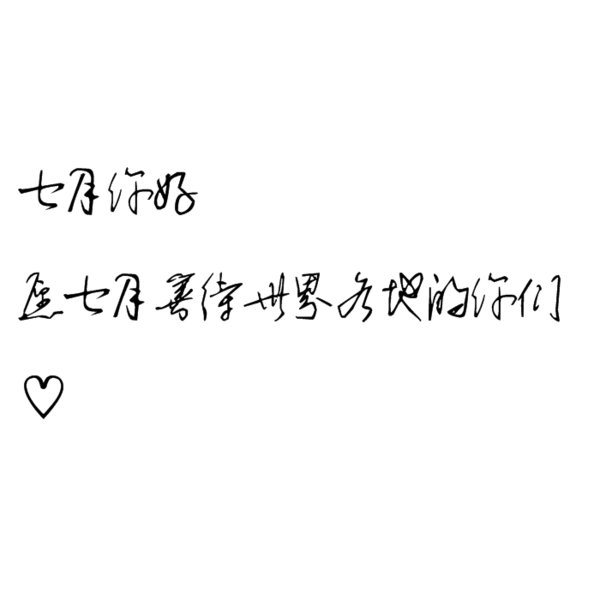 七月你好
愿七月善待世界各地的你们
♡